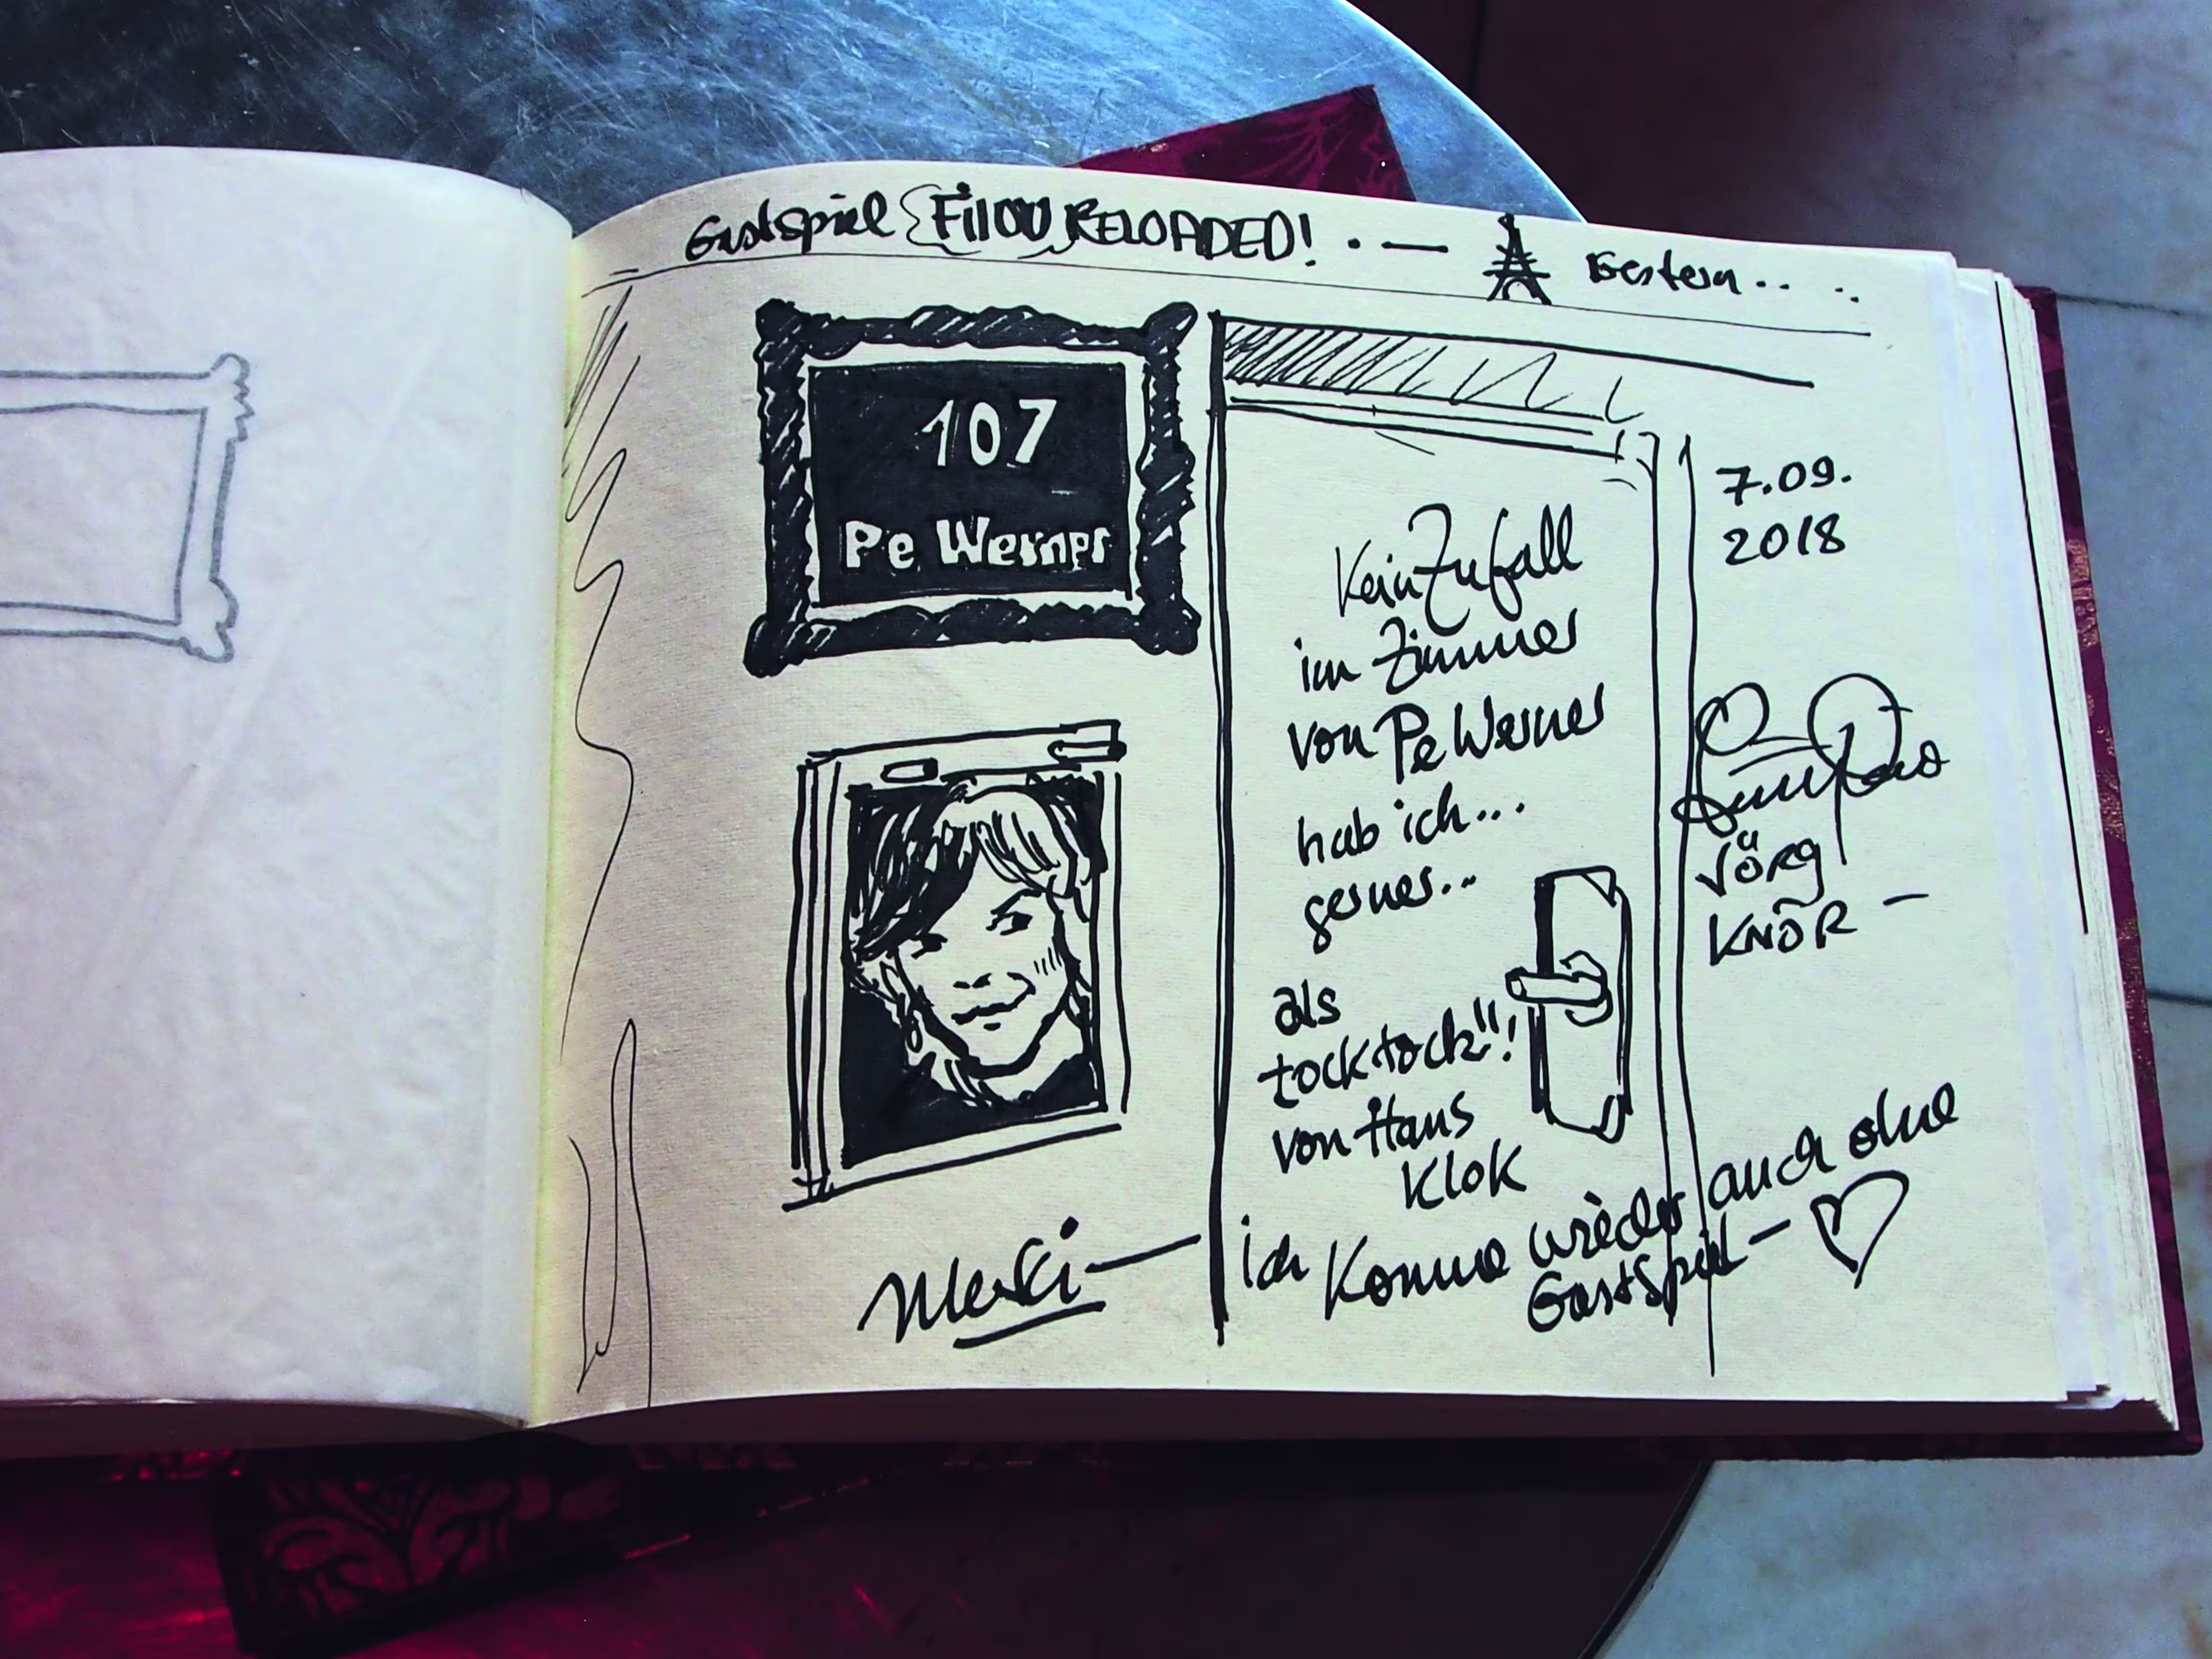 Gastspiel FilOU RELOADED! . — Gestern.. ..
107
Pe Werner
Kein Zufall
im Zimmer
von Pe Werner
hab ich...
gerner...
als
tocktock"!
von Hans
Klok
7.09.
2018
JÖRG
KNÖR —
Merci — ich komme wieder auch ohne
Gastspiel —